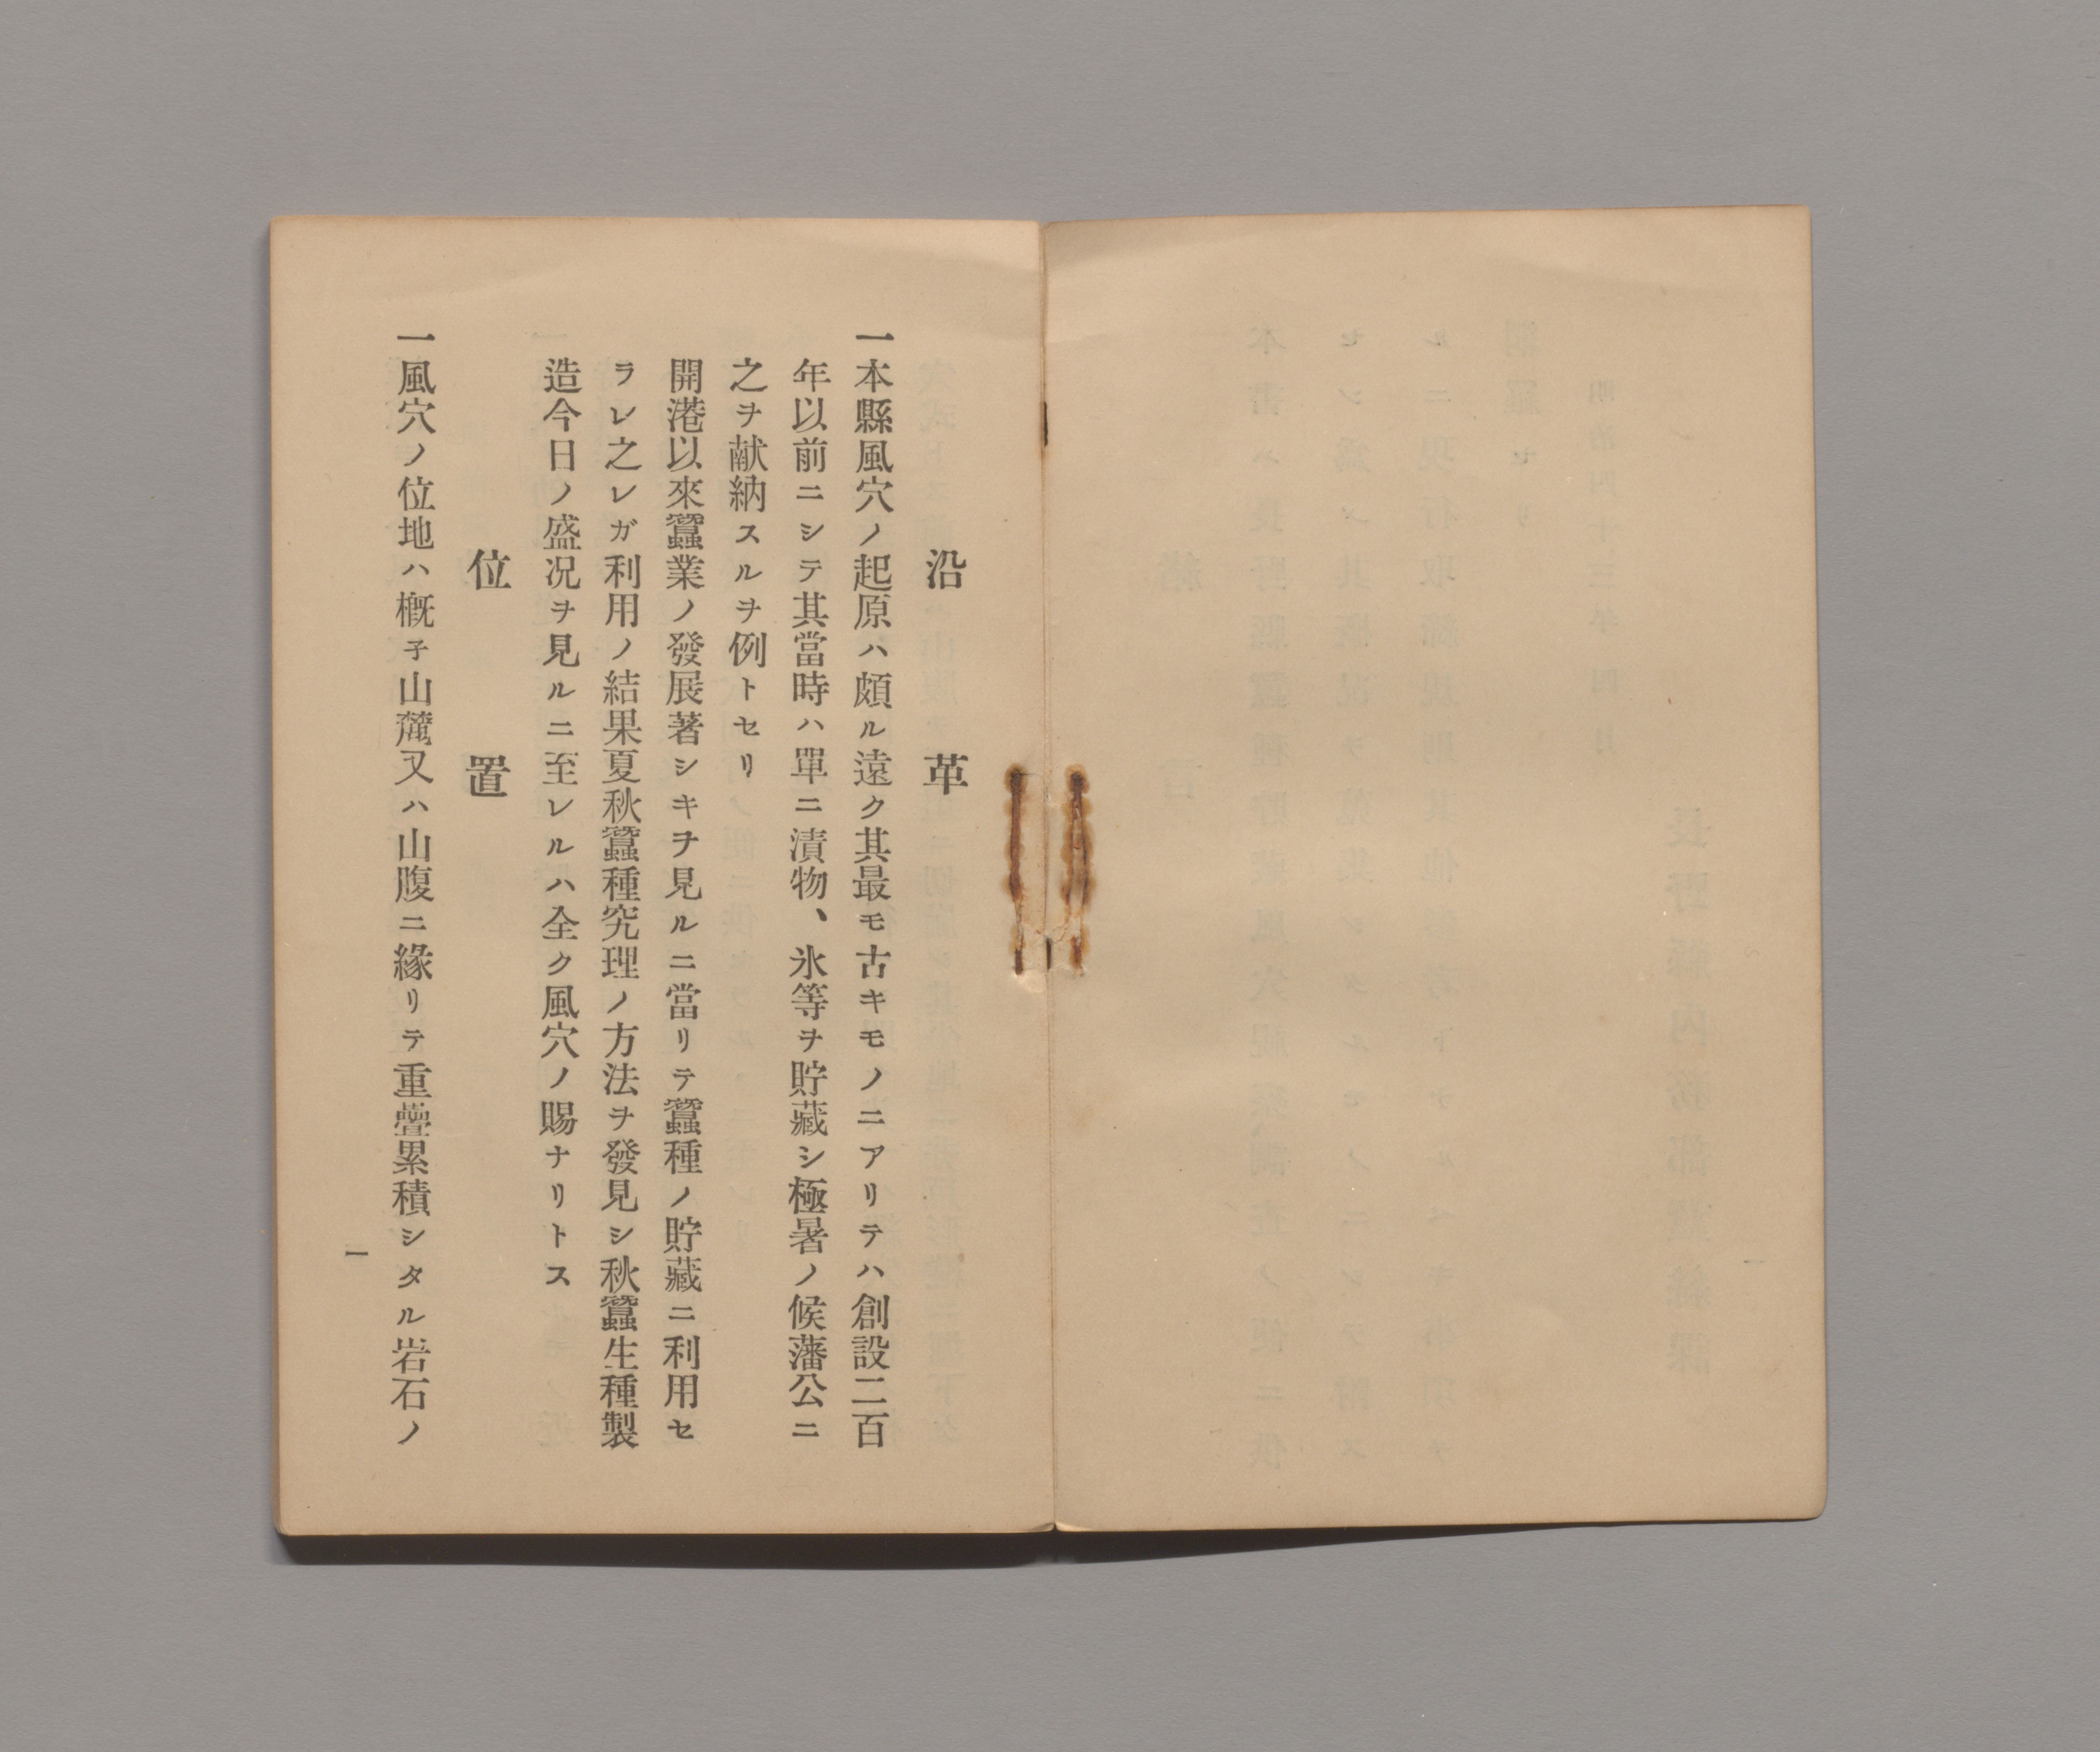 沿革
一本縣風穴ノ起原ハ頗ル遠ク其最モ古キモノニアリテハ創設二百
年以前ニシテ其當時ハ單ニ漬物、氷等ヲ貯藏シ極暑ノ候藩公ニ
之ヲ献納スルヲ例トセリ
開港以來蠶業ノ發展著シキヲ見ルニ當リテ蠶種ノ貯藏ニ利用セ
ラレ之レガ利用ノ結果夏秋蠶種究理ノ方法ヲ發見シ秋蠶生種製
造今日ノ盛况ヲ見ルニ至レルハ全ク風穴ノ賜ナリトス
位置
一風穴ノ位地ハ概子山麓又ハ山腹ニ緣リテ重疊累積シタル岩石ノ
一